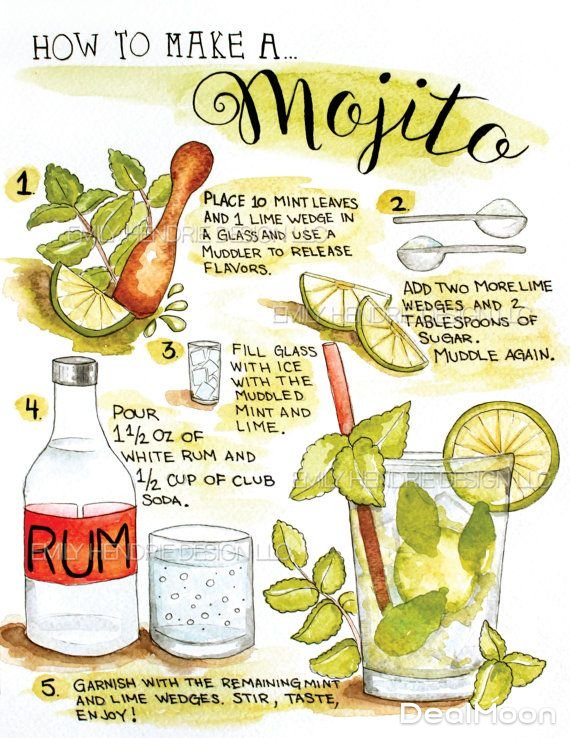 HOW TO MAKE A...
Mojito
1.
PLACE 10 MINT LEAVES
AND 1 LIME WEDGE IN
A GLASS AND USE A
MUDDLER TO RELEASE
FLAVORS.
EMILY HENDRIE DESIGN LLC
2.
ADD TWO MORE LIME
WEDGES AND 2
TABLESPOONS OF
SUGAR.
MUDDLE AGAIN.
EMILY HENDRIE DESIGN LLC
3.
FILL GLASS
WITH ICE
WITH THE
MUDDLED
MINT AND
LIME.
4.
POUR
1 1/2 OZ OF
WHITE RUM AND
1/2 CUP OF CLUB
SODA.
EMILY HENDRIE DESIGN LLC
RUM
EMILY HENDRIE DESIGN LLC
5. GARNISH WITH THE REMAINING MINT
AND LIME WEDGES. STIR, TASTE,
ENJOY!
DealMoon